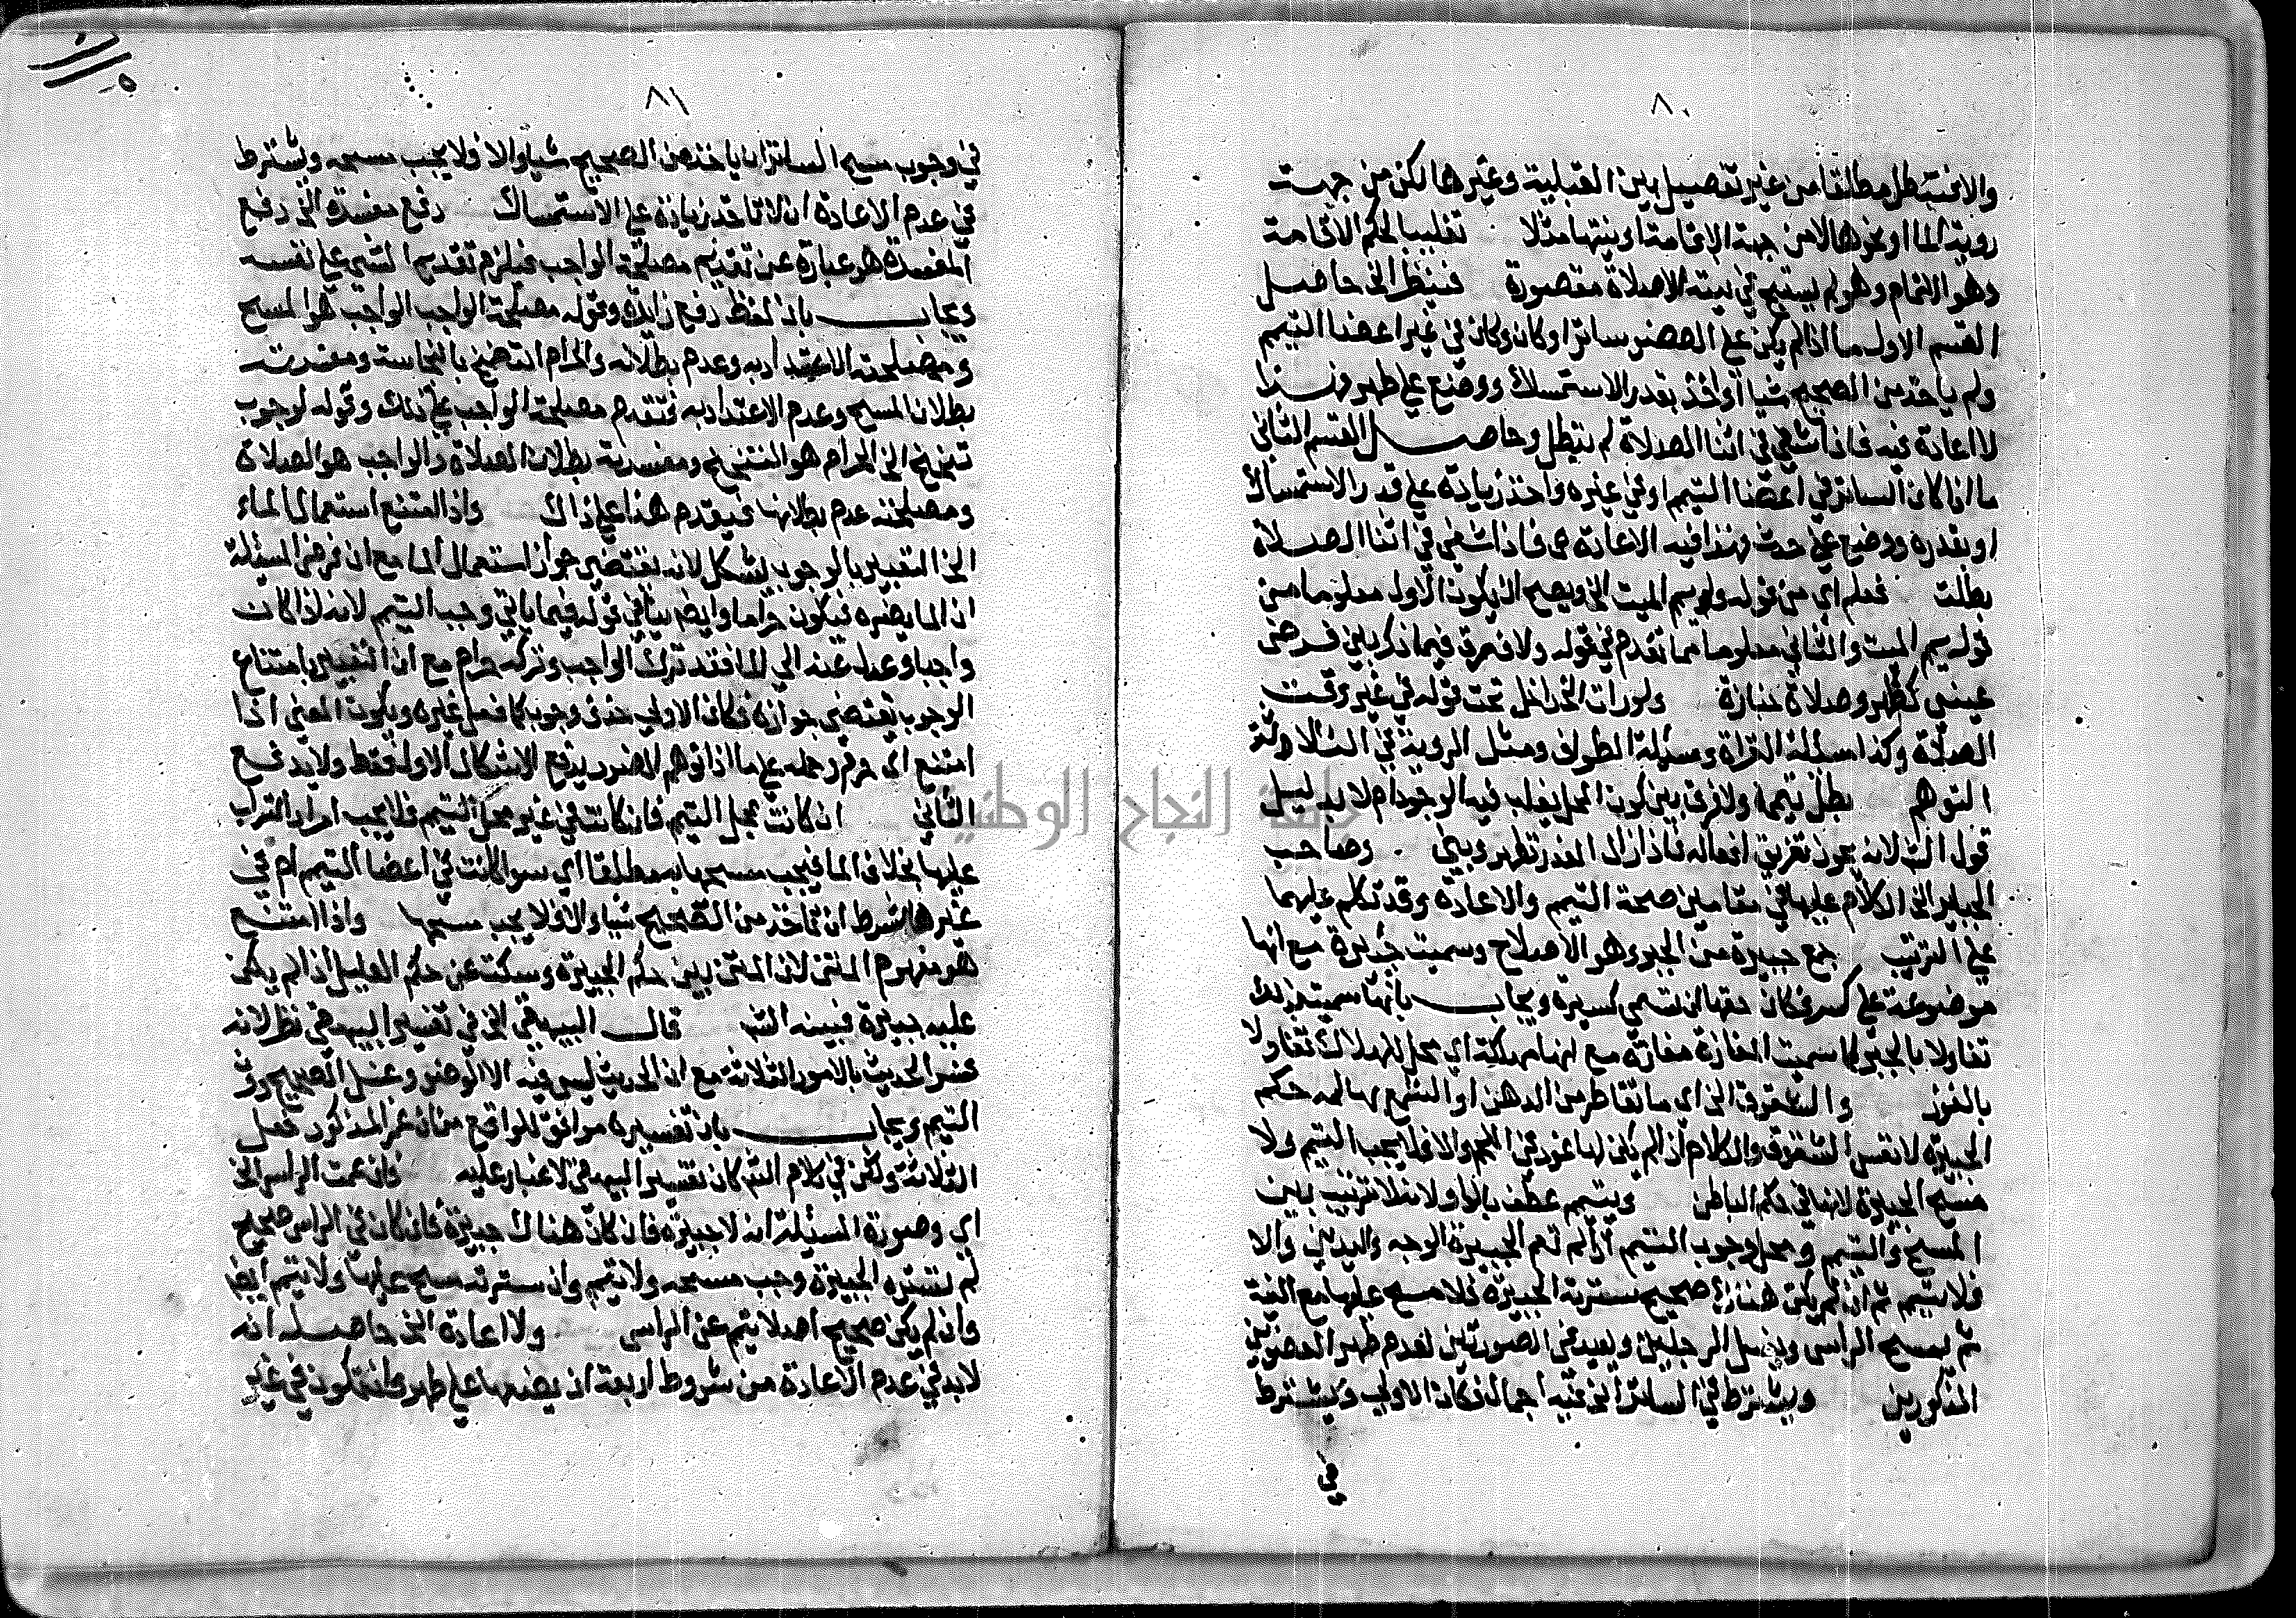 ٨٠
والا فتبطل مطلقا من غير تفصيل بين القبلية وغيرها لكن من جهت
روية الما او نحوها لا من جهة الاقامة او نيتها مثلا تغليبا لحكم الاقامة
وهو الاتمام وهو لم يستبح في نيته الا صلاة مقصورة فينظر الخ حاصل
القسم الاول ما اذا لم يكن على العضو ساتر او كان وكان في غير اعضا التيمم
ولم ياخذ من الصحيح شيا او اخذ بقدر الاستمساك ووضع على طهر فهذا
لا اعادة فيه فاذا شفي في اثنا الصلاة لم تبطل وحاصل القسم الثاني
ما اذا كان الساتر في اعضا التيمم او في غيره واخذ زيادة على قدر الاستمساك
او بقدره ووضع على حدث فهذا فيه الاعادة فاذا شفي في اثنا الصلاة
بطلت فعلم اي من قوله ولو يمم الميت الخ ويصح ان يكون الاول معلوما من
قوله يمم الميت والثاني معلوما مما تقدم في قوله ولا فرق فيما ذكر بين فرض
عيني كظهر وصلاة جنازة ولو رات الخ داخل تحت قوله في غير وقت
الصلاة وكذا مسئلة القراة ومسئلة الطواف ومثل الروية في الثلاثة
التوهم بطل تيممها ولا فرق بين كون المحل يغلب فيه الوجود ام لا بدليل
قول الش لانه يجوز تفريق افعاله فاذا زال العذر تطهر وبني وصاحب
الجباير الخ الكلام عليها في مقامين صحة التيمم والاعادة وقد تكلم عليهما
على الترتيب جمع جبيرة من الجبر وهو الاصلاح وسميت جبيرة مع انها
موضوعة على كسر فكان حقها ان تسمى كسيرة ويجاب بانها سميت بذلك
تفاولا بالجبر كما سميت المفازة مفازة مع انها مهلكة اي محل للهلاك تفاولا
بالفوز والشقوق الخ اي ما تقاطر من الدهن او الشمع بها له حكم
الجبيرة لا نفس الشقوق والكلام ان لم يكن لها غور في اللحم والا فلا يجب التيمم ولا
مسح الجبيرة لانها في حكم الباطن ويتيمم عطف بالواو لانه لا ترتيب بين
المسح والتيمم ومحل وجوب التيمم اذا لم تعم الجبيرة الوجه واليدين والا
فلا تيمم ثم ان لم يكن هناك صحيح سترته الجبيرة فلا مسح عليها مع النية
ثم يمسح الراس ويغسل الرجلين ويعيد في الصورتين لعدم طهر العضوين
المذكورين ويشترط في الساتر الخ فيه اجمال فكان الاولى ويشترط
في
٨١
في وجوب مسح الساتر ان ياخذ من الصحيح شيا والا فلا يجب مسحه ويشترط
في عدم الاعادة ان لا تاخذ زيادة على الاستمساك دفع مفسدة الخ دفع
المفسدة هو عبارة عن تقديم مصلحة الواجب فيلزم تقديم الشي على نفسه
ويجاب بان لفظ دفع زايدة وقوله مصلحة الواجب الواجب هو المسح
ومصلحته الاعتداد به وعدم بطلانه والحرام التضمخ بالنجاسة ومفسدته
بطلان المسح وعدم الاعتداد به فتقدم مصلحة الواجب على ذلك وقوله لوجوب
تنحنح الخ الحرام هو التنحنح ومفسدته بطلان الصلاة والواجب هو الصلاة
ومصلحته عدم بطلانها فيقدم هذا على ذاك واذا امتنع استعمال الماء
الخ التعبير بالوجوب يشكل لانه يقتضي جواز استعمال الما مع ان فرض المسئلة
ان الما يضره فيكون حراما وايضا ينافي قوله فيما ياتي وجب التيمم لانه اذا كان
واجبا وعدل عنه الى الما فقد ترك الواجب وتركه حرام مع ان التعبير بامتناع
الوجوب يقتضي جوازه فكان الاولى حذف وجوب كما فعل غيره ويكون المعنى اذا
امتنع اي حرم وحمله على ما اذا توهم الضرر يدفع الاشكال الاول فقط ولا يدفع
الثاني ان كانت بمحل التيمم فان كانت في غير محل التيمم فلا يجب امرار التراب
عليها بخلاف الما فيجب مسحها به مطلقا اي سوا كانت في اعضا التيمم ام في
غيرها بشرط ان تاخذ من الصحيح شيا والا فلا يجب مسحها واذا امتنع
هو مفهوم المتن لان المتن بين حكم الجبيرة وسكت عن حكم العليل اذا لم يكن
عليه جبيرة فبينه الش قال البيهقي الخ في تفسير البيهقي نظر لانه
فسر الحديث بالامور الثلاثة مع ان الحديث ليس فيه الا الوضو وغسل الصحيح دون
التيمم ويجاب بان تفسيره موافق للواقع من ان عمر المذكور فعل
الثلاثة ولكن في كلام الش كان تفسير البيهقي لا غبار عليه فان عمت الراس الخ
اي وصورة المسئلة انه لا جبيرة فان كان هناك جبيرة فان كان في الراس صحيح
لم تستره الجبيرة وجب مسحه ولا تيمم وان سترته مسح عليها ولا تيمم ايضا
وان لم يكن صحيح اصلا تيمم عن الراس ولا اعادة الخ حاصله انه
لا بد في عدم الاعادة من شروط اربعة ان يضعها على طهر وان تكون في غير
جامعة النجاح الوطنية